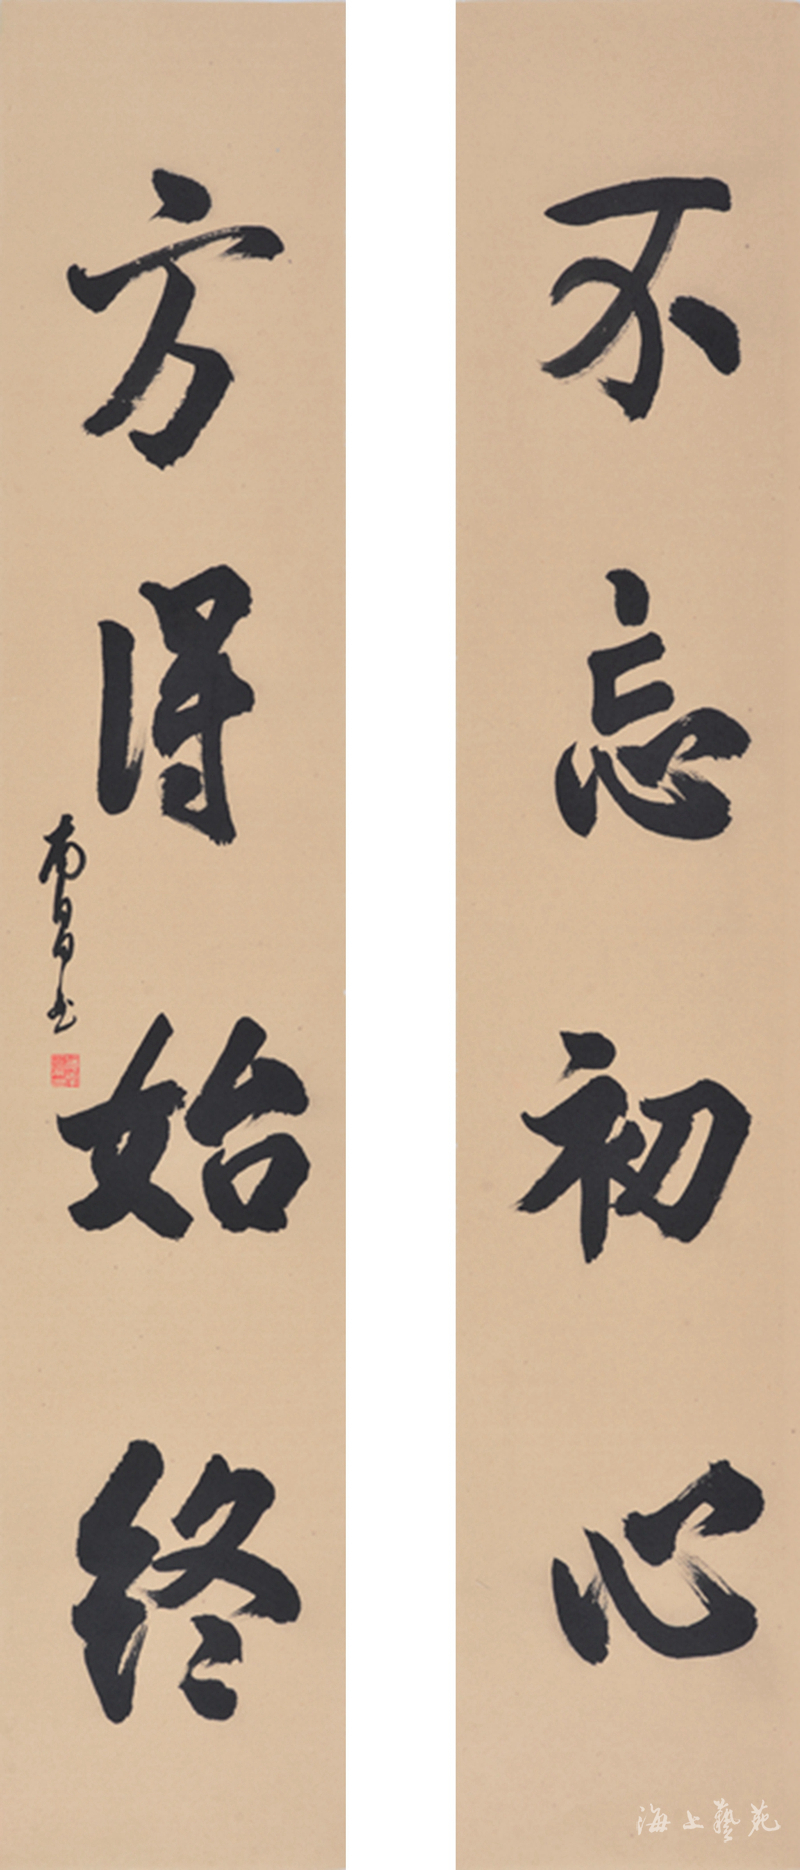 不忘初心
方得始终
南昌书
海上藝苑